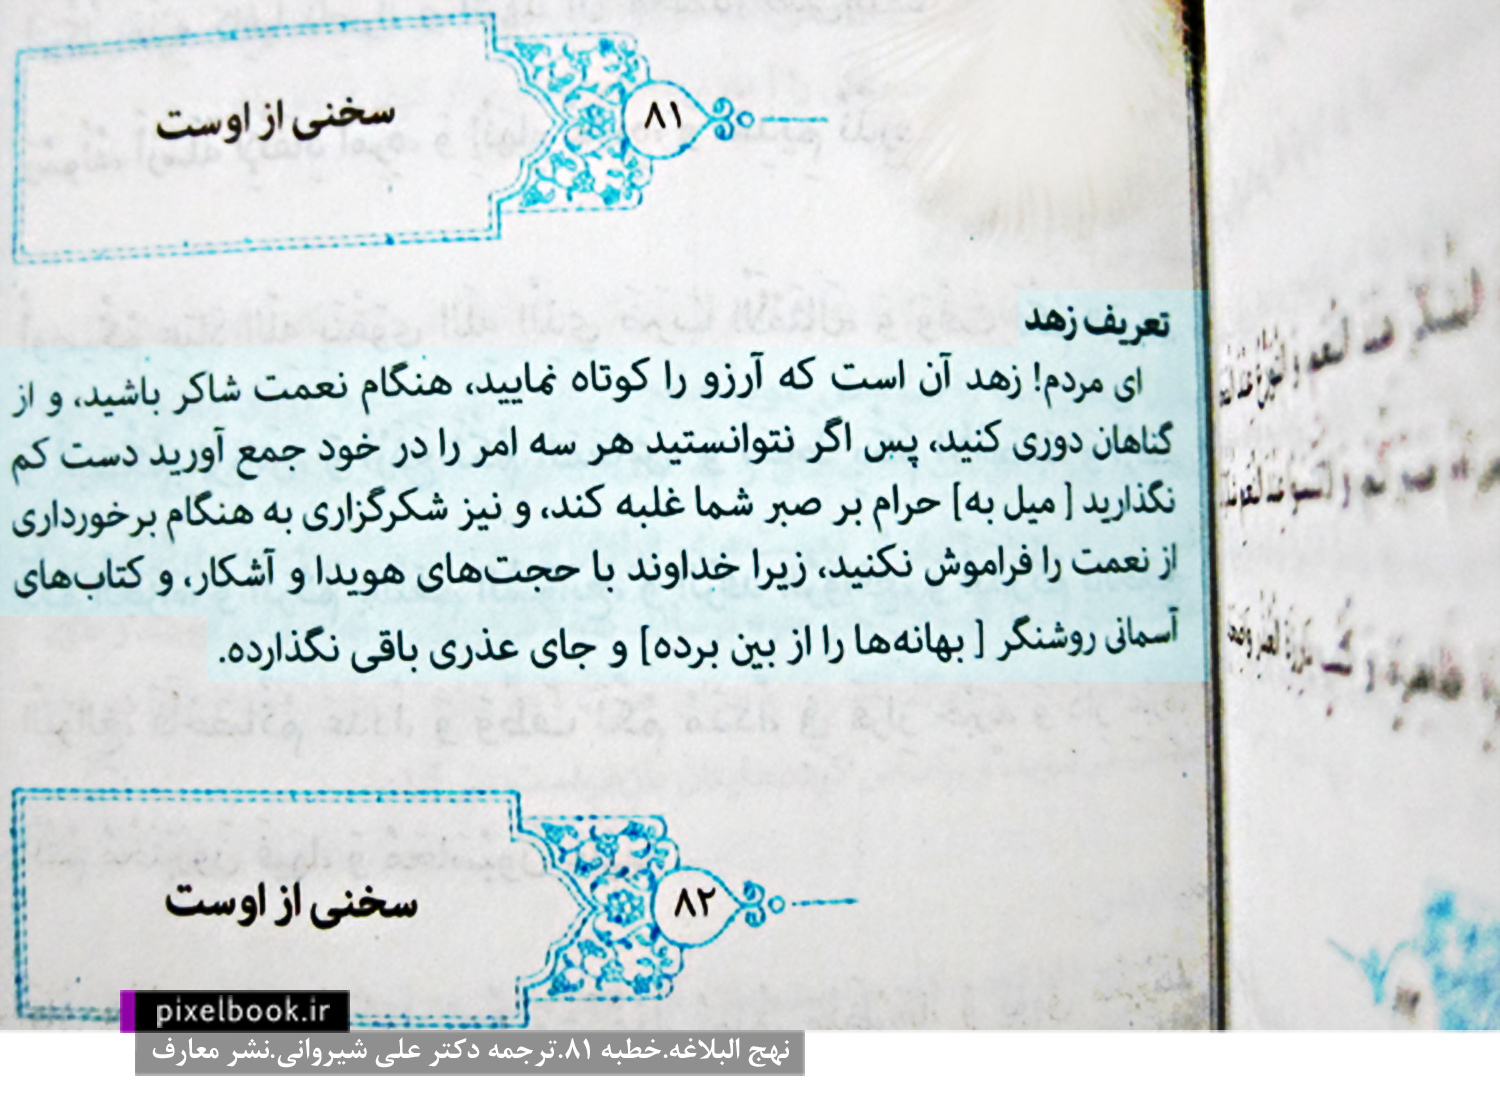 سخنی از اوست
۸۱
تعریف زهد
ای مردم! زهد آن است که آرزو را کوتاه نمایید، هنگام نعمت شاکر باشید، و از
گناهان دوری کنید، پس اگر نتوانستید هر سه امر را در خود جمع آورید دست کم
نگذارید [ میل به] حرام بر صبر شما غلبه کند، و نیز شکرگزاری به هنگام برخورداری
از نعمت را فراموش نکنید، زیرا خداوند با حجت‌های هویدا و آشکار، و کتاب‌های
آسمانی روشنگر [ بهانه‌ها را از بین برده] و جای عذری باقی نگذارده.
۸۲
سخنی از اوست
pixelbook.ir
نهج البلاغه.خطبه ۸۱.ترجمه دکتر علی شیروانی.نشر معارف